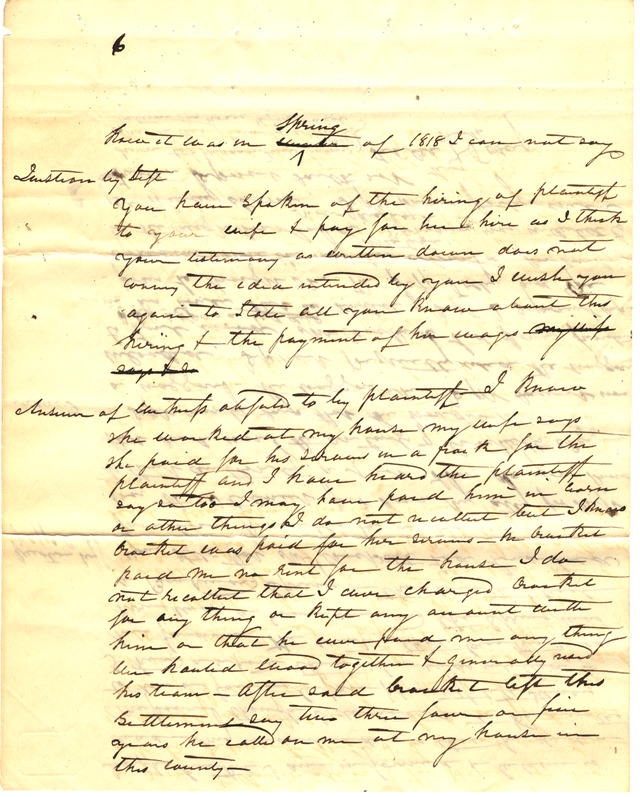 6
how it was in Spring winter of 1818 I can not say
Question by Deft
You have Spoken of the hiring of plaintiff
to your wife & pay for her hire as I think
your testimony as written down does not
convey the idea intended by you I wish you
again to State all you Know about this
hiring & the payment of her wages my wife
says & so
Answer of witness objected to by plaintiff - I Know
she worked at my house my wife says
she paid for his services in a frock for the
plaintiff and I have heard the plaintiff
say so too I may have paid him in corn
or other things I do not recollect but I know
Crocket was paid for her services - Mr Crocket
paid me no rent for the house I do
not recollect that I ever charged Crocket
for any thing or Kept any account with
him or that he ever paid me any thing
We hauled wood together & Generally used
his team - After said Crocket left this
Settlement say two three four or five
years he called on me at my house in
this county -